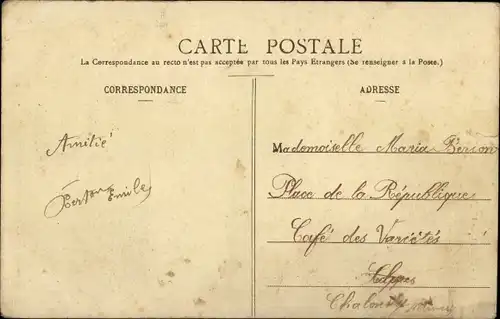 CARTE POSTALE
La Correspondance au recto n'est pas acceptée par tous les Pays Etrangers (Se renseigner à la Poste.)
CORRESPONDANCE
ADRESSE
Amitié
Emile
Mademoiselle Maria
Place de la République
Café des Variétés